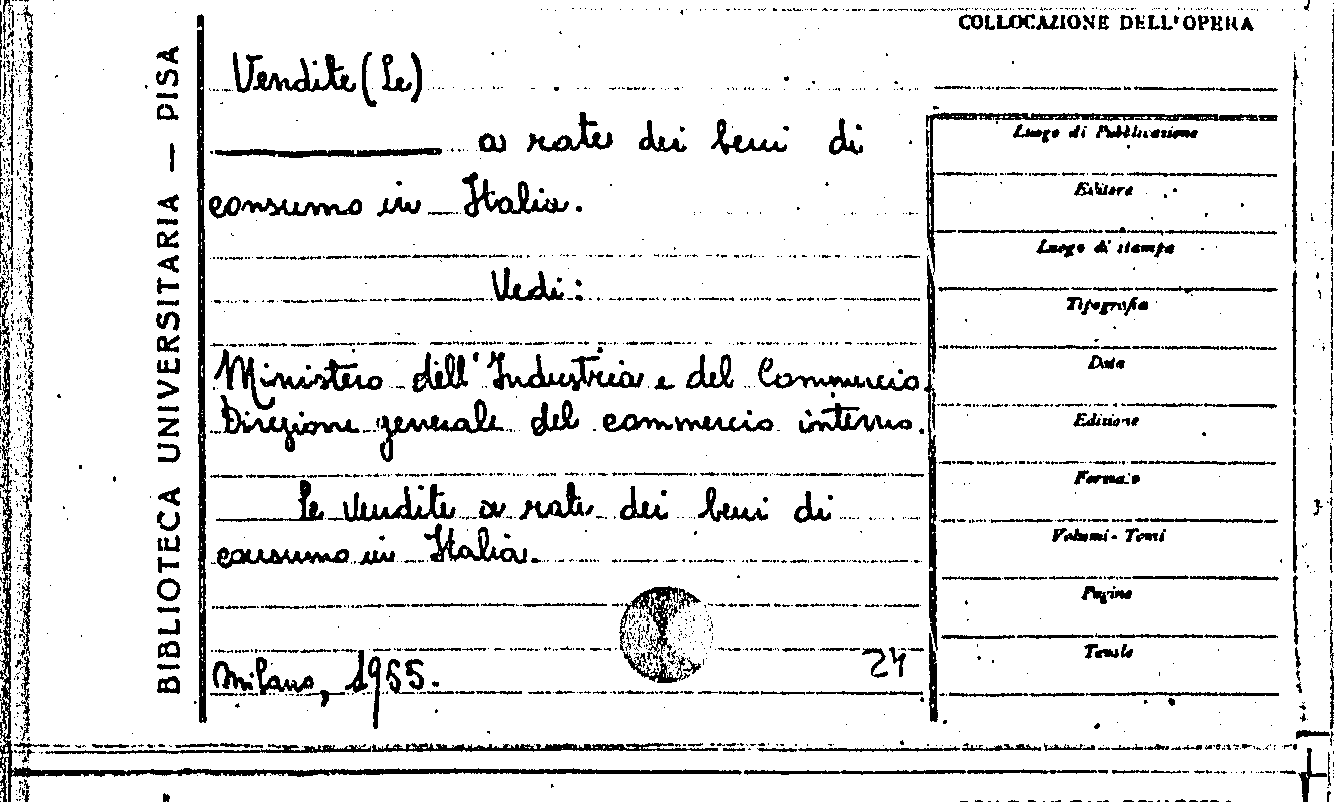 BIBLIOTECA UNIVERSITARIA — PISA
Vendite (Le)
a rate dei beni di
consumo in Italia.
Vedi:
Ministero dell'Industria e del Commercio.
Direzione generale del commercio interno.
Le vendite a rate dei beni di
consumo in Italia.
Milano, 1955.
24
COLLOCAZIONE DELL'OPERA
Luogo di Pubblicazione
Editore
Luogo di stampa
Tipografia
Data
Edizione
Formato
Volumi - Tomi
Pagine
Tavole